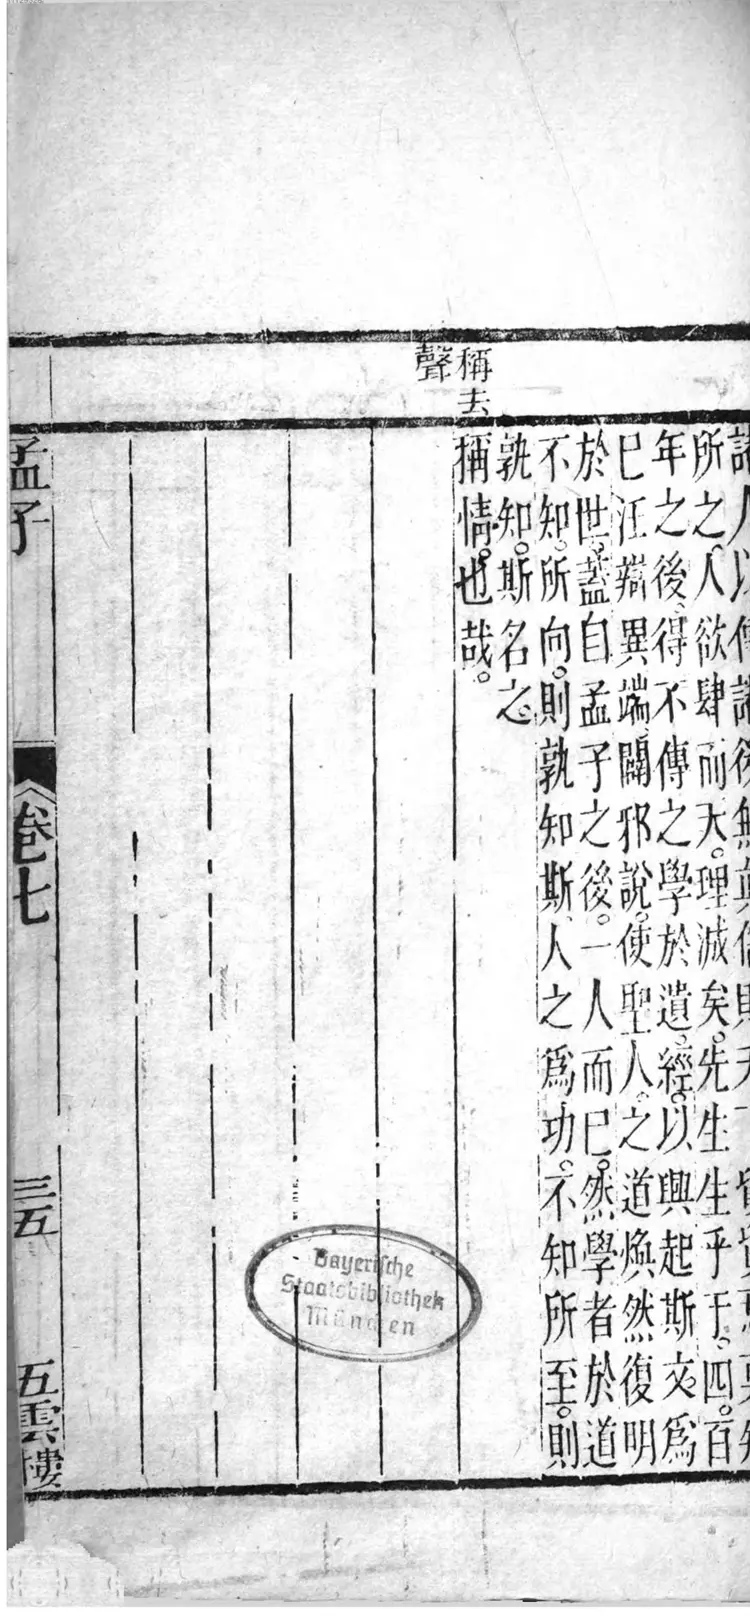 諸人以傳諸後無真儒則天下貿貿焉莫知
所之。人欲肆而天。理滅矣。先生生乎于。四。百
年之後。得不傳之學於遺。經。以興起斯文。爲
巳汪辯異端。闢邪說。使聖人。之道煥然復明
於世。蓋自孟子之後。一人而巳。然學者於道
不知。所向。則孰知斯人之爲功。不知所至。則
稱去
聲
孰知。斯名之。
稱情。也哉。
孟子
卷七
三五
五雲樓
Bayerische
Staatsbibliothek
München